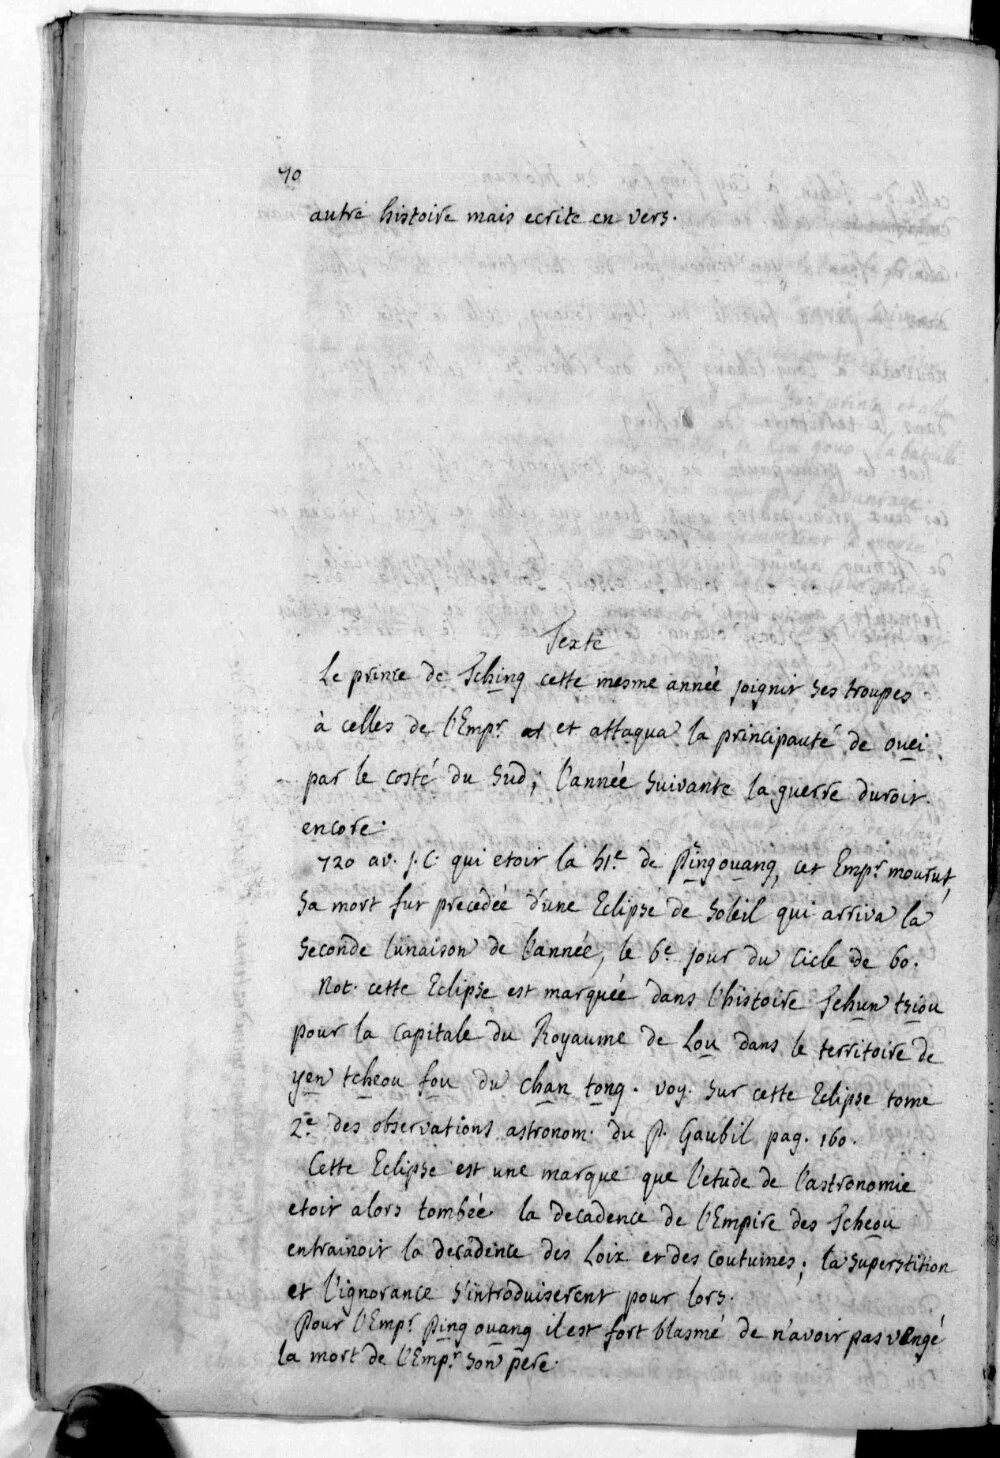 70
autre histoire mais ecrite en vers.
Texte
Le prince de Tching cette mesme année joignit ses troupes
à celles de l'Empr. et et attaqua la principauté de ouei
par le costé du sud; l'année suivante la guerre duroit
encore.
720 av. J. C. qui etoit la 51e. de Ping ouang, cet Empr. mourut,
sa mort fut precedée d'une Eclipse de soleil qui arriva la
seconde lunaison de l'année, le 6e. jour du Cicle de 60.
Not. cette Eclipse est marquée dans l'histoire Tchun tsiou
pour la Capitale du Royaume de Lou dans le territoire de
yen tcheou fou du chan tong. voy. sur cette Eclipse tome
2e. des observations astronom. du P. Gaubil pag. 160.
Cette Eclipse est une marque que l'etude de l'astronomie
etoit alors tombée. la decadence de l'Empire des Tcheou
entrainoit la decadence des Loix et des coutumes; la superstition
et l'ignorance s'introduiserent pour lors.
Pour l'Empr. Ping ouang il est fort blasmé de n'avoir pas vengé
la mort de l'Empr. son pere.